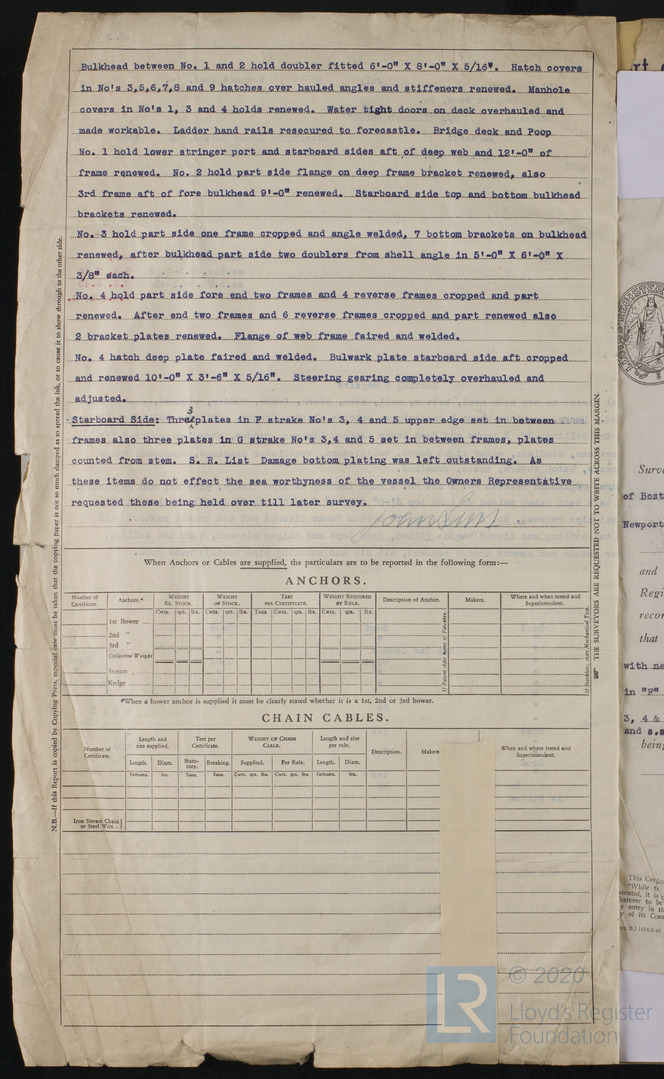 Bulkhead between No. 1 and 2 hold doubler fitted 6'-0" X 8'-0" X 5/16". Hatch covers
in No's 3,5,6,7,8 and 9 hatches over hauled angles and stiffeners renewed. Manhole
covers in No's 1, 3 and 4 holds renewed. Water tight doors on deck overhauled and
made workable. Ladder hand rails resecured to forecastle. Bridge deck and Poop
No. 1 hold lower stringer port and starboard sides aft of deep web and 12'-0" of
frame renewed. No. 2 hold part side flange on deep frame bracket renewed, also
3rd frame aft of fore bulkhead 9'-0" renewed. Starboard side top and bottom bulkhead
brackets renewed.
No. 3 hold part side one frame cropped and angle welded, 7 bottom brackets on bulkhead
renewed, after bulkhead part side two doublers from shell angle in 5'-0" X 6'-0" X
3/8" each.
No. 4 hold part side fore end two frames and 4 reverse frames cropped and part
renewed. After end two frames and 6 reverse frames cropped and part renewed also
2 bracket plates renewed. Flange of web frame faired and welded.
No. 4 hatch deep plate faired and welded. Bulwark plate starboard side aft cropped
and renewed 10'-0" X 3'-6" X 5/16". Steering gearing completely overhauled and
adjusted.
3
Starboard Side: Three plates in F strake No's 3, 4 and 5 upper edge set in between
frames also three plates in G strake No's 3,4 and 5 set in between frames, plates
counted from stem. S. R. List Damage bottom plating was left outstanding. As
these items do not effect the sea worthyness of the vessel the Owners Representative
requested these being held over till later survey.
When Anchors or Cables are supplied, the particulars are to be reported in the following form:—
ANCHORS.
Number of Certificate. Anchors.* WEIGHT EX. STOCK. WEIGHT OF STOCK. TEST PER CERTIFICATE. WEIGHT REQUIRED BY RULE. Description of Anchor. Makers. Where and when tested and Superintendent.
Cwts. qrs. lbs. Cwts. qrs. lbs. Tons Cwts. qrs. lbs. Cwts. qrs. lbs.
1st Bower
2nd "
3rd "
Collective Weight
Stream
Kedge
*When a bower anchor is supplied it must be clearly stated whether it is a 1st, 2nd or 3rd bower.
CHAIN CABLES.
Number of Certificate. Length and size supplied. Test per Certificate. WEIGHT OF CHAIN CABLE. Length and size per rule. Description. Makers When and where tested and Superintendent.
Length. Diam. Statutory. Breaking. Supplied. Per Rule. Length. Diam.
Fathoms. Ins. Tons. Tons. Cwts. qrs. lbs. Cwts. qrs. lbs. Fathoms. Ins.
Iron Stream Chain or Steel Wire
N.B.—If this Report is copied by Copying Press, especial care must be taken that the copying paper is not so much damped as to spread the ink, or to cause it to show through to the other side.
THE SURVEYORS ARE REQUESTED NOT TO WRITE ACROSS THIS MARGIN.
of Bost
Newport
and
Regi
recor
that
with ne
in "F"
3, 4 &
and s.s
being
LR
© 2020
Lloyd's Register
Foundation